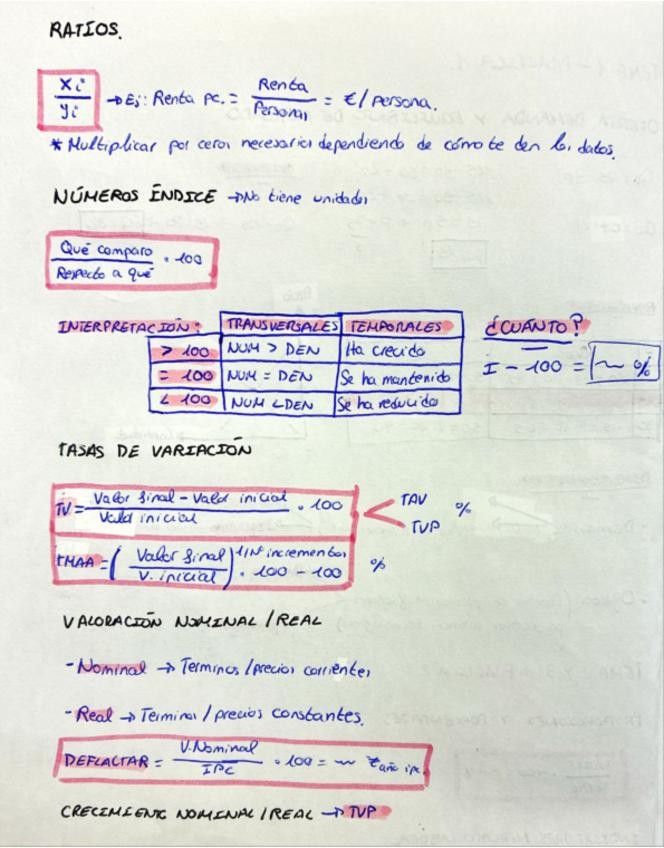 RATIOS.
Xi / Yi → Ej: Renta pc. = Renta / Personas = €/persona.
* Multiplicar por ceros necesarios dependiendo de cómo te den los datos.
NÚMEROS ÍNDICE → No tiene unidades
Qué comparo / Respecto a qué · 100
INTERPRETACIÓN: TRANSVERSALES TEMPORALES ¿CUÁNTO?
> 100 NUM > DEN Ha crecido
= 100 NUM = DEN Se ha mantenido I - 100 = ~ %
< 100 NUM < DEN Se ha reducido
TASAS DE VARIACIÓN
TV = Valor final - Valor inicial / Valor inicial · 100 < TAV TVP %
TMAA = ( Valor final / V. inicial ) 1/Nº incrementos · 100 - 100 %
VALORACIÓN NOMINAL / REAL
- Nominal → Terminos/precios corrientes
- Real → Terminos/precios constantes.
DEFLACTAR = V. Nominal / IPC · 100 = ~ año ipc.
CRECIMIENTO NOMINAL / REAL → TVP